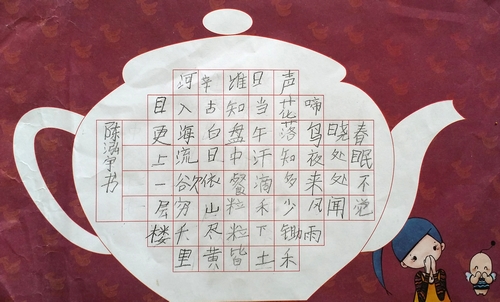 春眠不觉
晓处处闻
啼鸟夜来风雨
声花落知多少锄禾
日当午汗滴禾下土
谁知盘中餐粒粒皆
辛古白日依山尽黄
河入海流欲穷千里
目更上一层楼
陈书